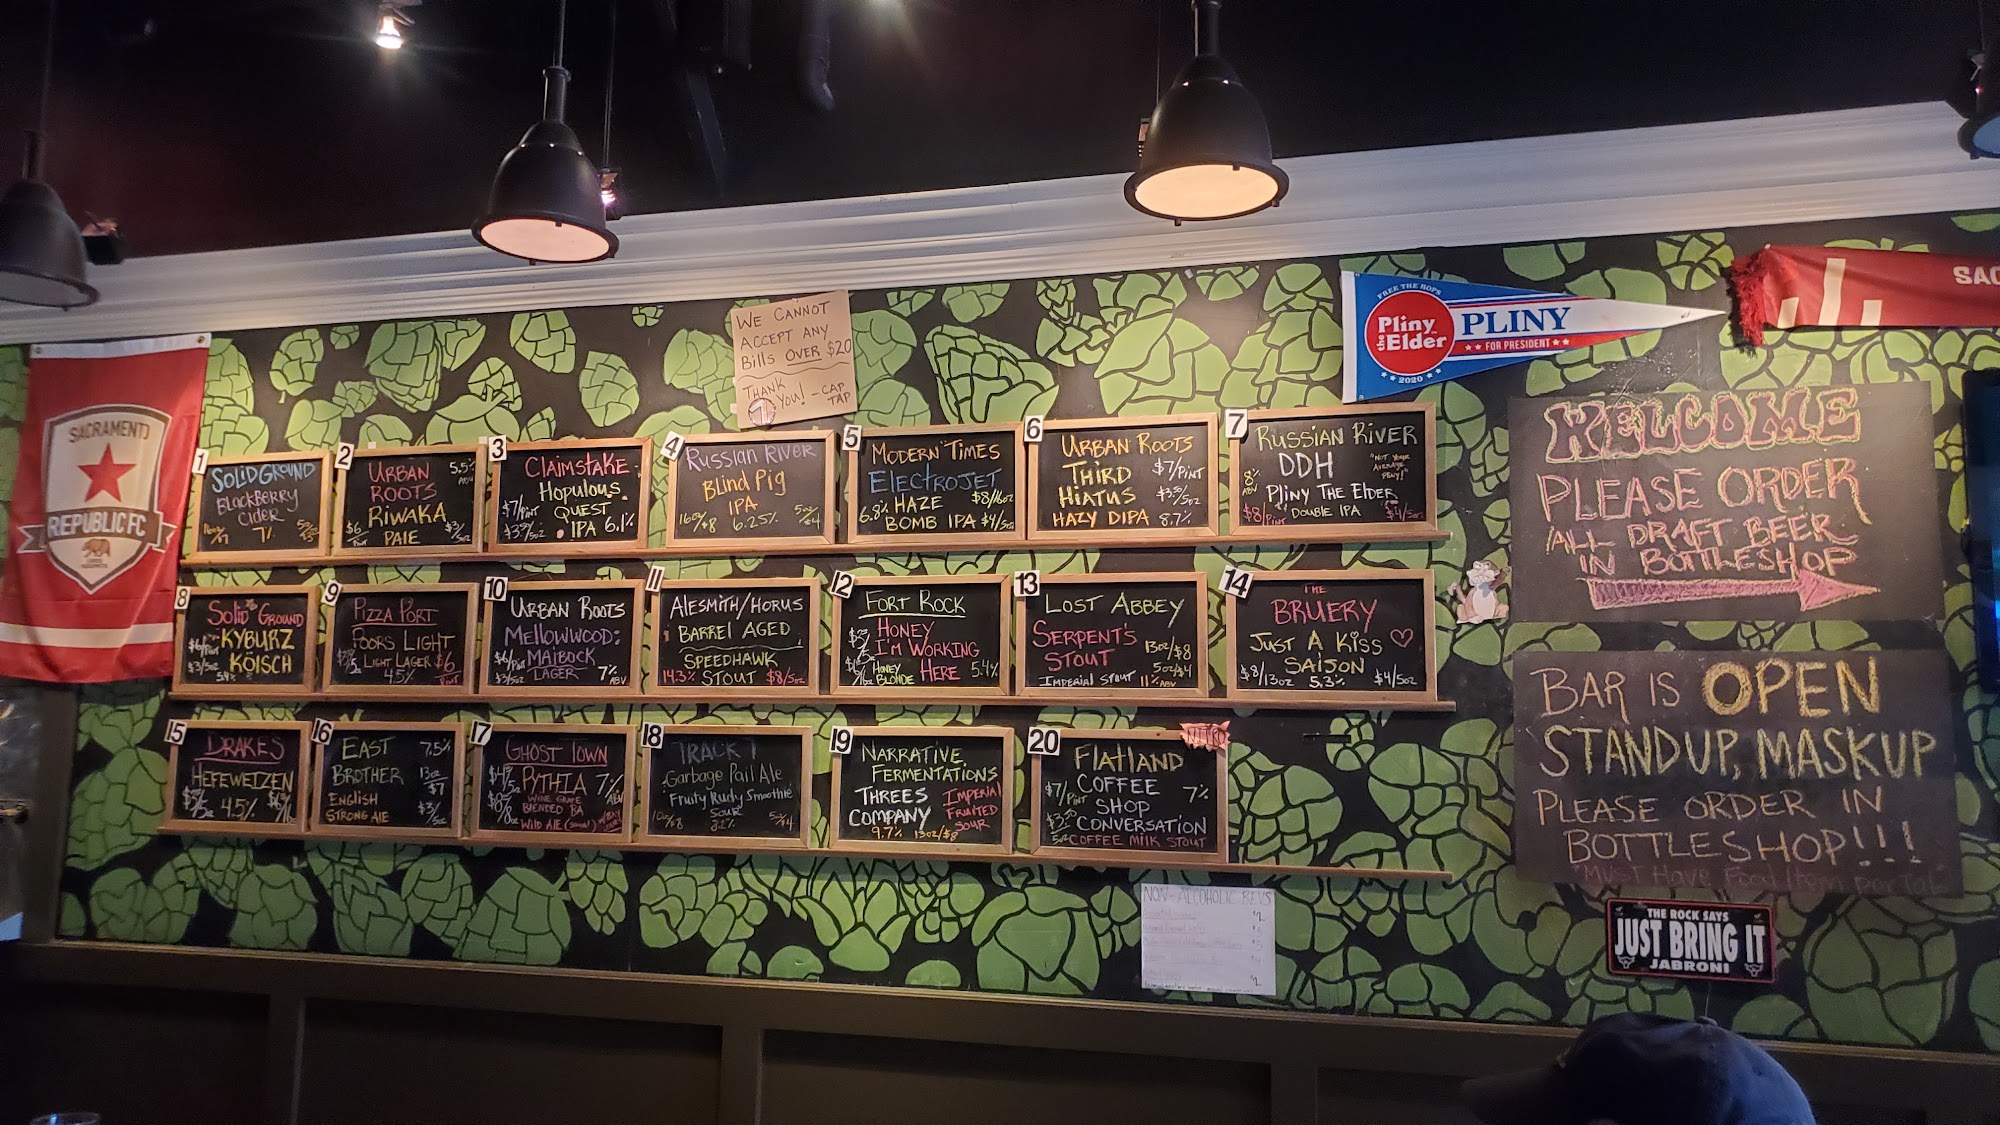 WE CANNOT
ACCEPT ANY
BILLS OVER $20
THANK
YOU! - CAP
TAP
FREE THE HOPS
Pliny
the Elder
2020
PLINY
FOR PRESIDENT
SAC
SACRAMENTO
REPUBLIC FC
1
SOLID GROUND
BLACKBERRY
CIDER
7%
2
URBAN
ROOTS
5.5%
RIWAKA
PALE
$6/PINT
$3/5oz
3
CLAIMSTAKE
HOPULOUS
QUEST
IPA 6.1%
$7/PINT
$3.50/5oz
4
RUSSIAN RIVER
BLIND PIG
IPA
16oz/$8
6.25%
5oz/$4
5
MODERN TIMES
ELECTROJET
HAZE $8/16oz
6.8% BOMB IPA $4/5oz
6
URBAN ROOTS
THIRD $7/PINT
HIATUS $3.50/5oz
HAZY DIPA 8.7%
7
RUSSIAN RIVER
DDH
"NOT YOUR
AVERAGE
PLINY!"
8% ABV
PLINY THE ELDER
DOUBLE IPA
$8/PINT
$4/5oz
WELCOME
PLEASE ORDER
ALL DRAFT BEER
IN BOTTLESHOP
8
SOLID GROUND
KYBURZ
KÖISCH
$6/PINT
$3/5oz
5.4%
9
PIZZA PORT
POORS LIGHT
LIGHT LAGER $6/PINT
4.5%
10
URBAN ROOTS
MELLOWWOOD:
MAIBOCK
LAGER
$6/PINT
$3/5oz
7% ABV
11
ALESMITH/HORUS
BARREL AGED
SPEEDHAWK
14.3% STOUT $8/5oz
12
FORT ROCK
HONEY
I'M WORKING
HERE 5.4%
HONEY
BLONDE
13
LOST ABBEY
SERPENT'S
STOUT
13oz/$8
5oz/$4
IMPERIAL STOUT 11% ABV
14
THE
BRUERY
JUST A KISS
SAISON
$8/13oz 5.3% $4/5oz
BAR IS OPEN
STANDUP, MASKUP
PLEASE ORDER IN
BOTTLESHOP!!!
*MUST HAVE FOOD ITEM PER TAB
15
DRAKES
HEFEWEIZEN
4.5%
16
EAST 7.5%
BROTHER 13oz
$7
ENGLISH
STRONG ALE $3/5oz
17
GHOST TOWN
PYTHIA 7% ABV
WINE GRAPE
BLENDED BA
WILD ALE
18
TRACK 7
Garbage Pail Ale
Fruity Rudy Smoothie
SOUR
8.2%
5oz/$4
19
NARRATIVE
FERMENTATIONS
THREES
COMPANY
IMPERIAL
FRUITED
SOUR
9.7% 13oz/$8
20
NITRO
FLATLAND
COFFEE 7%
SHOP
CONVERSATION
COFFEE MILK STOUT
$7/PINT
$3.50/5oz
NON-ALCOHOLIC BEVS
THE ROCK SAYS
JUST BRING IT
JABRONI